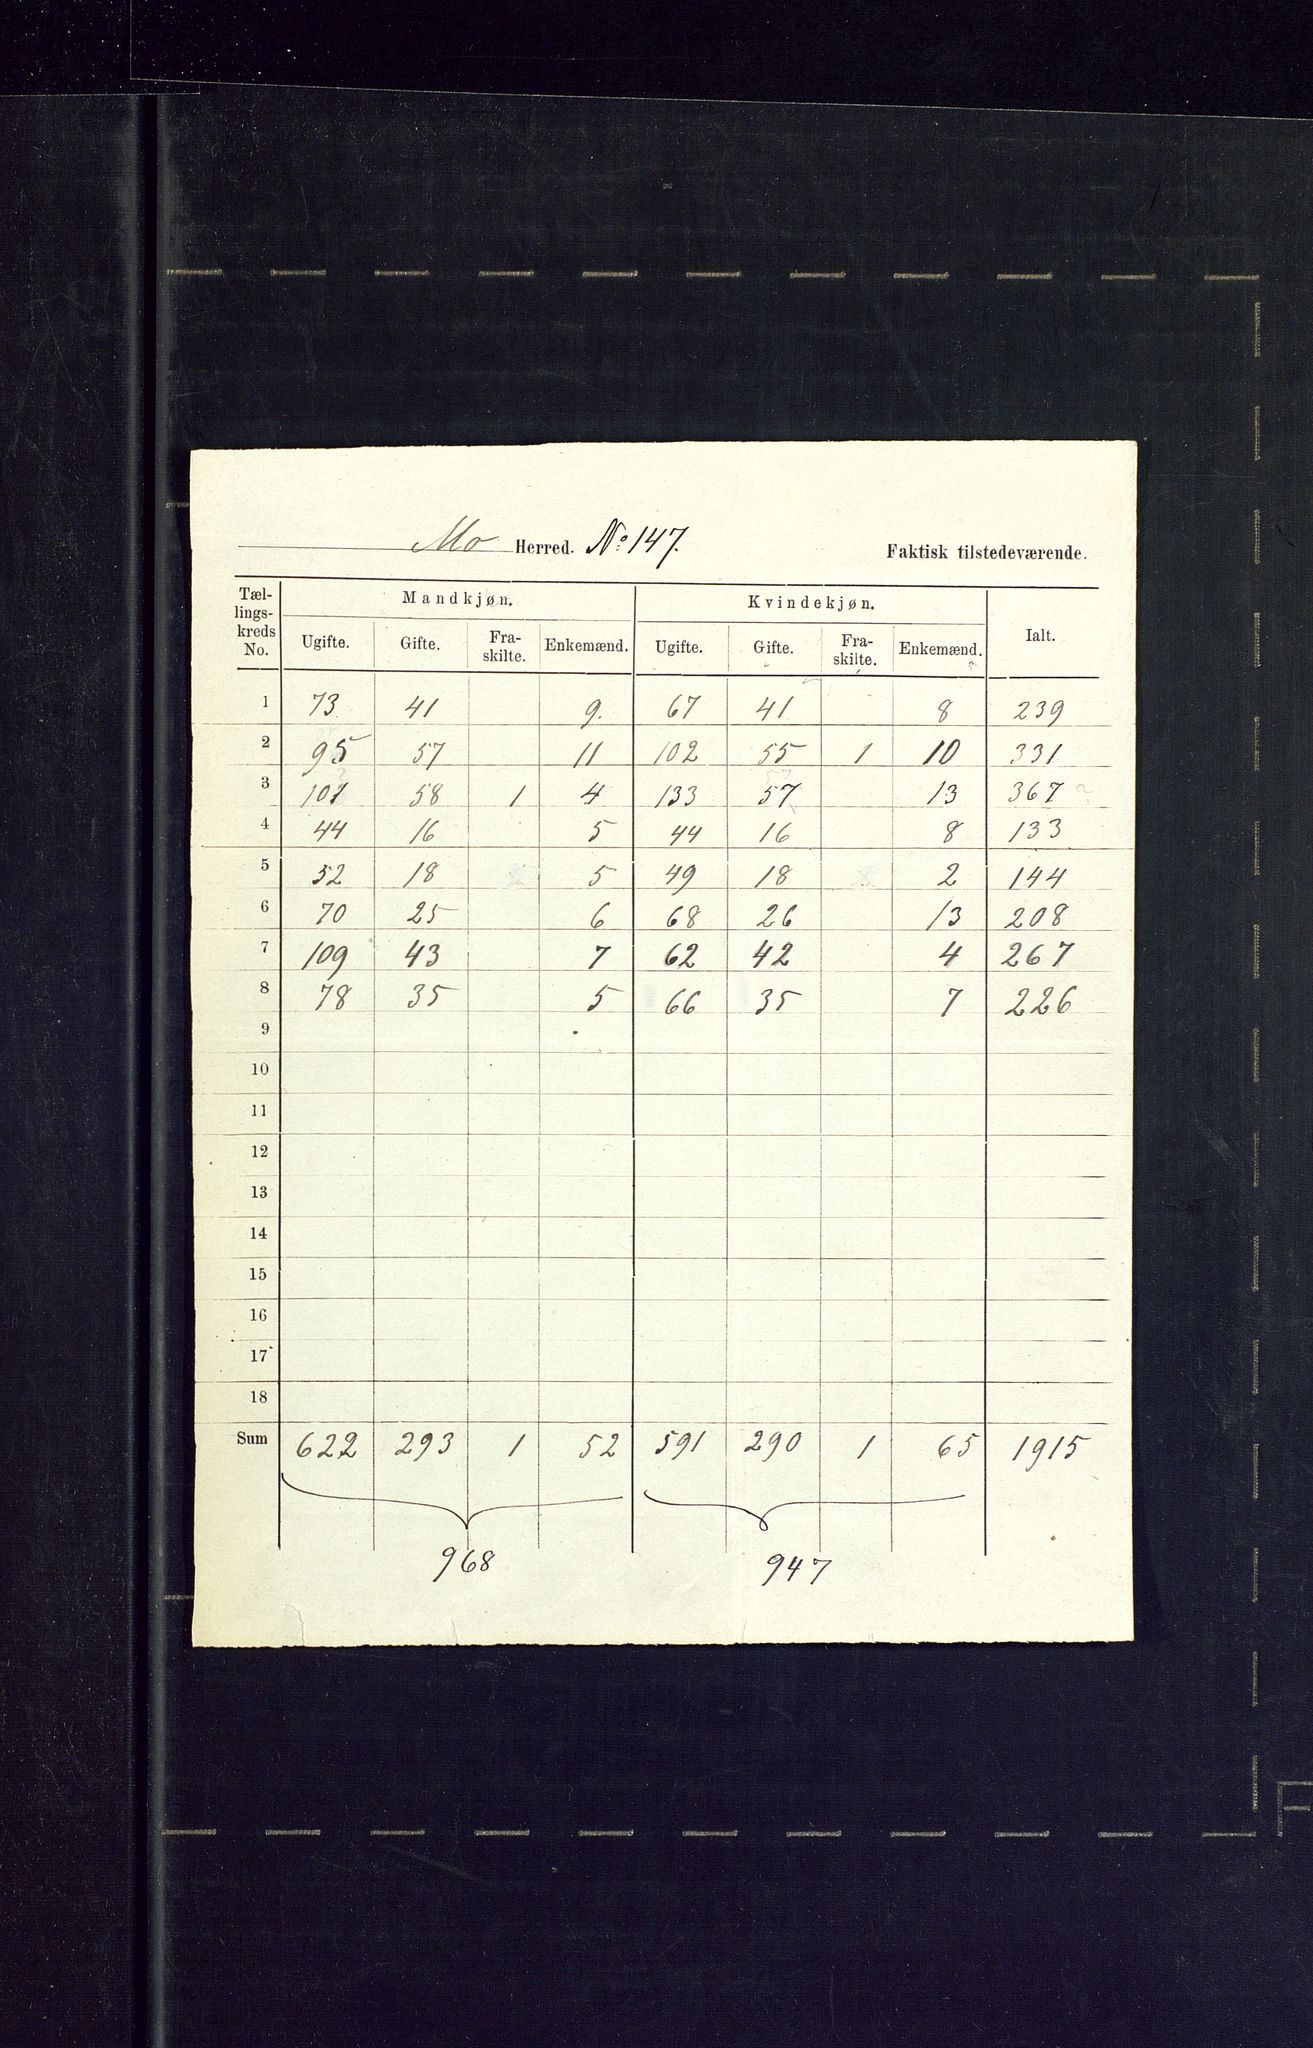 Mo Herred. No 147. Faktisk tilstedeværende.
Tællingskreds No. Mandkjøn. Kvindekjøn. Ialt.
Ugifte. Gifte. Fraskilte. Enkemænd. Ugifte. Gifte. Fraskilte. Enkemænd.
1 73 41 9. 67 41 8 239
2 95 57 11 102 55 1 10 331
3 101 58 1 4 133 57 13 367
4 44 16 5 44 16 8 133
5 52 18 5 49 18 2 144
6 70 25 6 68 26 13 208
7 109 43 7 62 42 4 267
8 78 35 5 66 35 7 226
9
10
11
12
13
14
15
16
17
18
Sum 622 293 1 52 591 290 1 65 1915
968 947